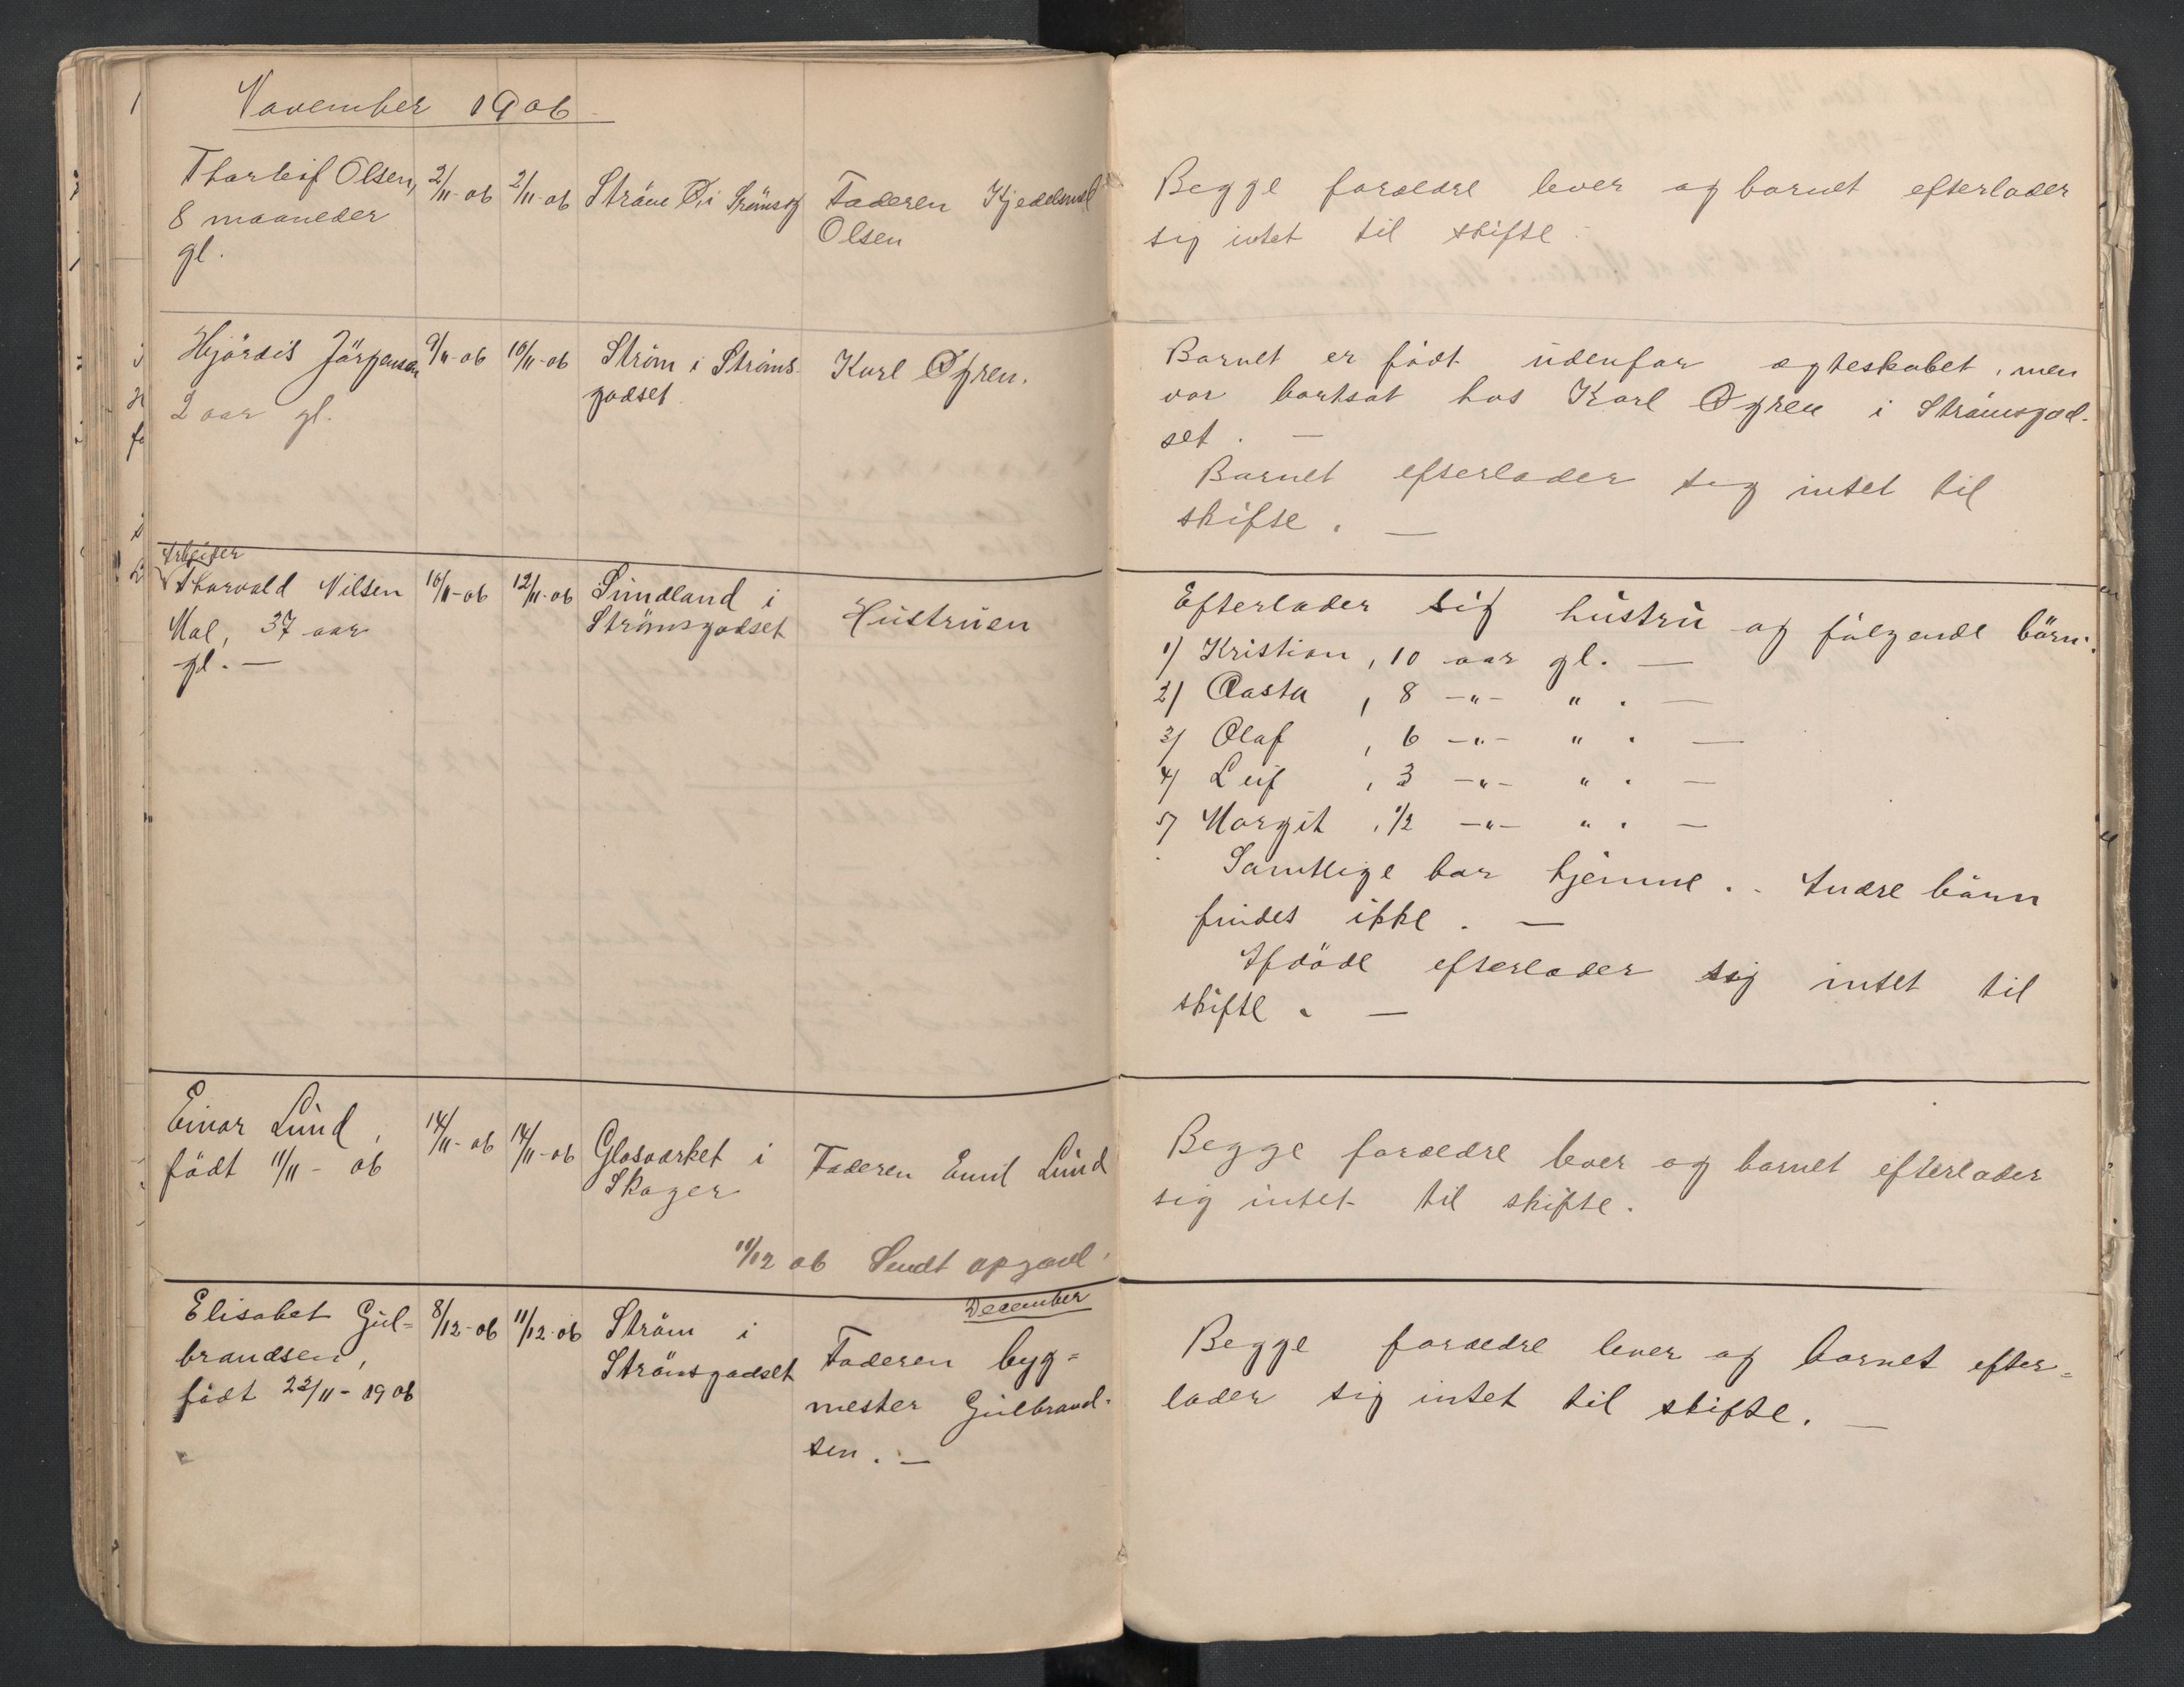 November 1906.
Thorleif Olsen,
8 maaneder
gl.
2/11-06
2/11-06
Ström Ø. i Strömsg
Faderen Kjeldsmed
Olsen
Begge forældre lever og barnet efterlader
sig intet til skifte.
Hjördis Jörgensen
2 aar gl.
9/11-06
10/11-06
Ström i Ströms-
godset
Karl Øgren.
Barnet er födt udenfor ægteskabet, men
var bortsat hos Karl Øgren i Strömsgod-
set. —
Barnet efterlader sig intet til
skifte. —
Arbeider
Thorvald Nilsen
Mal, 37 aar
gl. —
10/11-06
12/11-06
Sundland i
Strömsgodset
Hustruen
Efterlader sig hustru og fölgende börn:
1) Kristian, 10 aar gl. —
2) Aasta, 8 -"- " . —
3) Olaf, 6 -"- " . —
4) Leif, 3 -"- " . —
5) Margit, 1/2 -"- " . —
Samtlige bor hjemme. - Andre börn
findes ikke. —
Afdöde efterlader sig intet til
skifte. —
Einar Lund,
födt 11/11-06
14/11-06
14/11-06
Glasværket i
Skoger
Faderen Emil Lund
Begge forældre lever og barnet efterlader
sig intet til skifte.
11/12 06 Sendt opgave.
December
Elisabet Gul=
brandsen,
födt 22/11-1906
8/12-06
11/12-06
Ström i
Strömsgodset
Faderen byg=
mester Gulbrand-
sen. —
Begge forældre lever og barnet efter=
lader sig intet til skifte. —